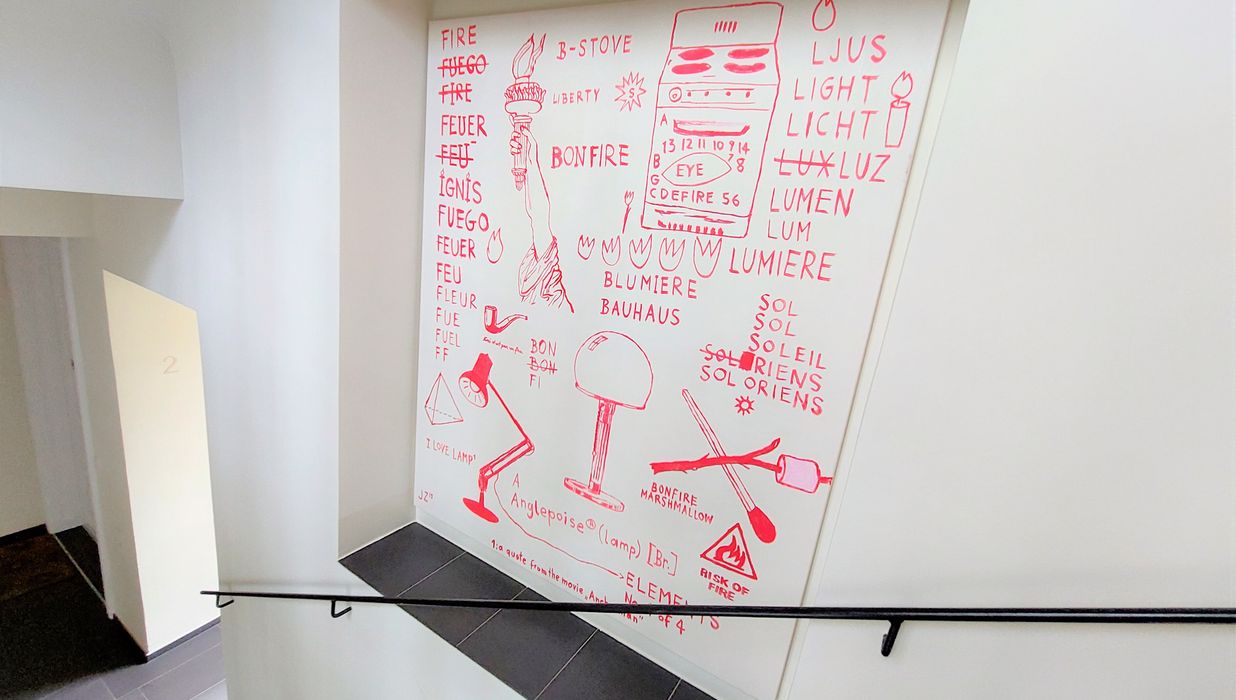 FIRE
FUEGO
FIRE
FEUER
FEU
IGNIS
FUEGO
FEUER
FEU
FLEUR
FUE
FUEL
FF
B-STOVE
LIBERTY
S
BONFIRE
A
13 12 11 10 9 14
B
EYE
7
8
G
CDEFIRE 56
BLUMIERE
BAUHAUS
LJUS
LIGHT
LICHT
LUX LUZ
LUMEN
LUM
LUMIERE
SOL
SOL
SOLEIL
SOL RIENS
SOL ORIENS
BON
BON
FI
I LOVE LAMP¹
JZ
A
Anglepoise® (lamp) [Br.]
BONFIRE
MARSHMALLOW
RISK OF
FIRE
1: a quote from the movie
ELEMENTS
of 4
2